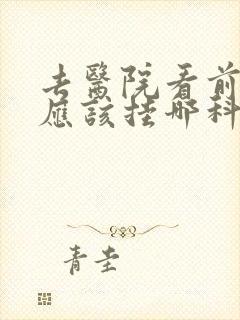 去醫院看前
應該挂哪科
青圭